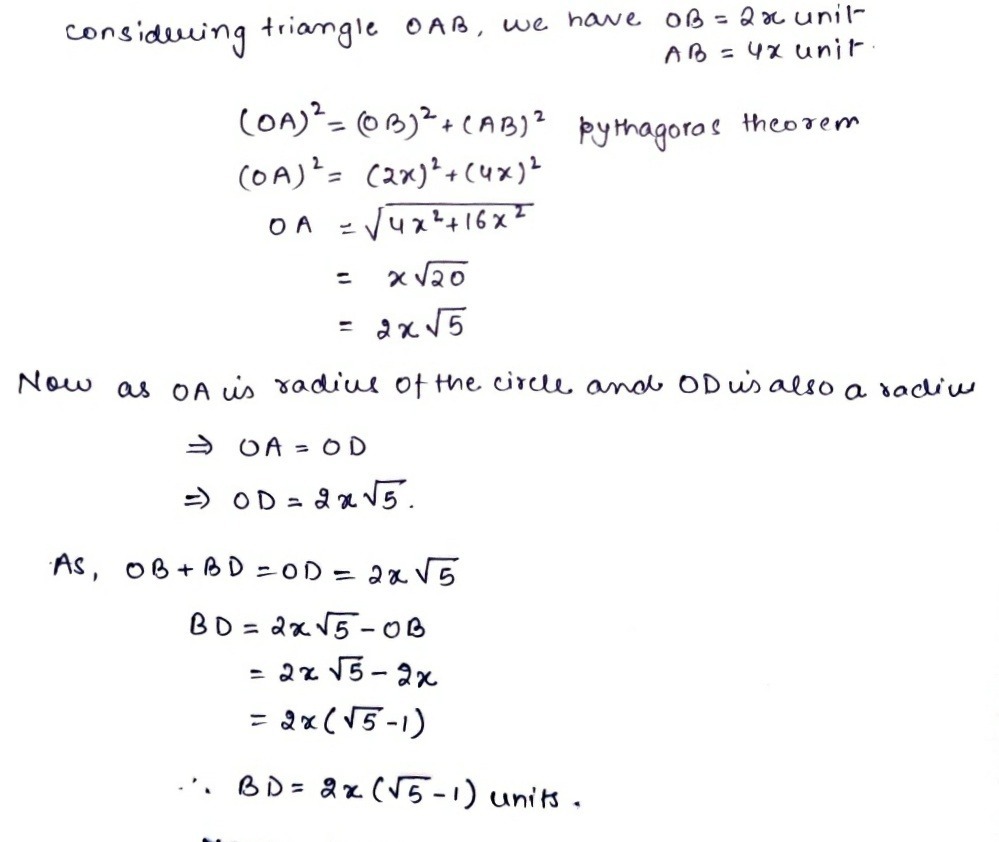 considering triangle OAB, we have OB = 2x unit
AB = 4x unit.
(OA)² = (OB)² + (AB)² pythagoras theorem
(OA)² = (2x)² + (4x)²
OA = √(4x² + 16x²)
= x√20
= 2x√5
Now as OA is radius of the circle and OD is also a radius
⇒ OA = OD
⇒ OD = 2x√5.
As, OB + BD = OD = 2x√5
BD = 2x√5 - OB
= 2x√5 - 2x
= 2x(√5 - 1)
∴ BD = 2x(√5 - 1) units.